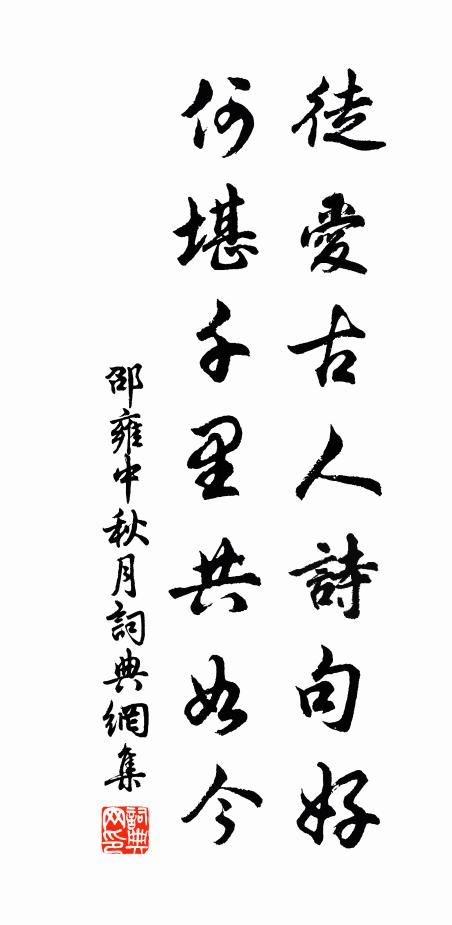 徒愛古人詩句好
何堪千里共如今
邵雍中秋月詞典網集
詞典網印